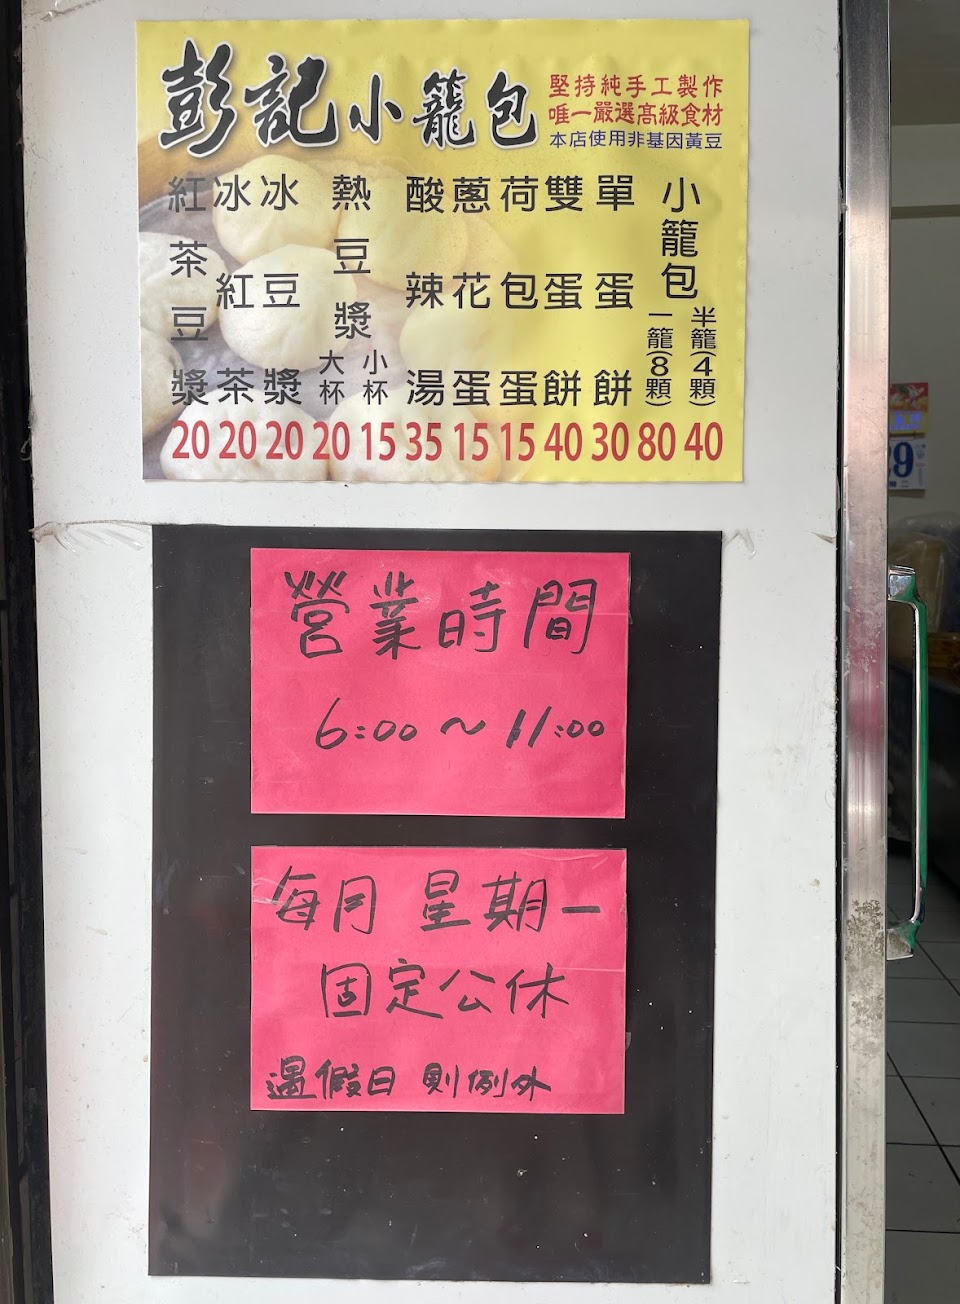 彭記小籠包
堅持純手工製作
唯一嚴選高級食材
本店使用非基因黃豆
小籠包
半籠(4顆) 40
一籠(8顆) 80
單蛋餅 30
雙蛋餅 40
荷包蛋 15
蔥花蛋 15
酸辣湯 35
熱豆漿
小杯 15
大杯 20
冰豆漿 20
冰紅茶 20
紅茶豆漿 20
營業時間
6:00～11:00
每月星期一
固定公休
遇假日則例外